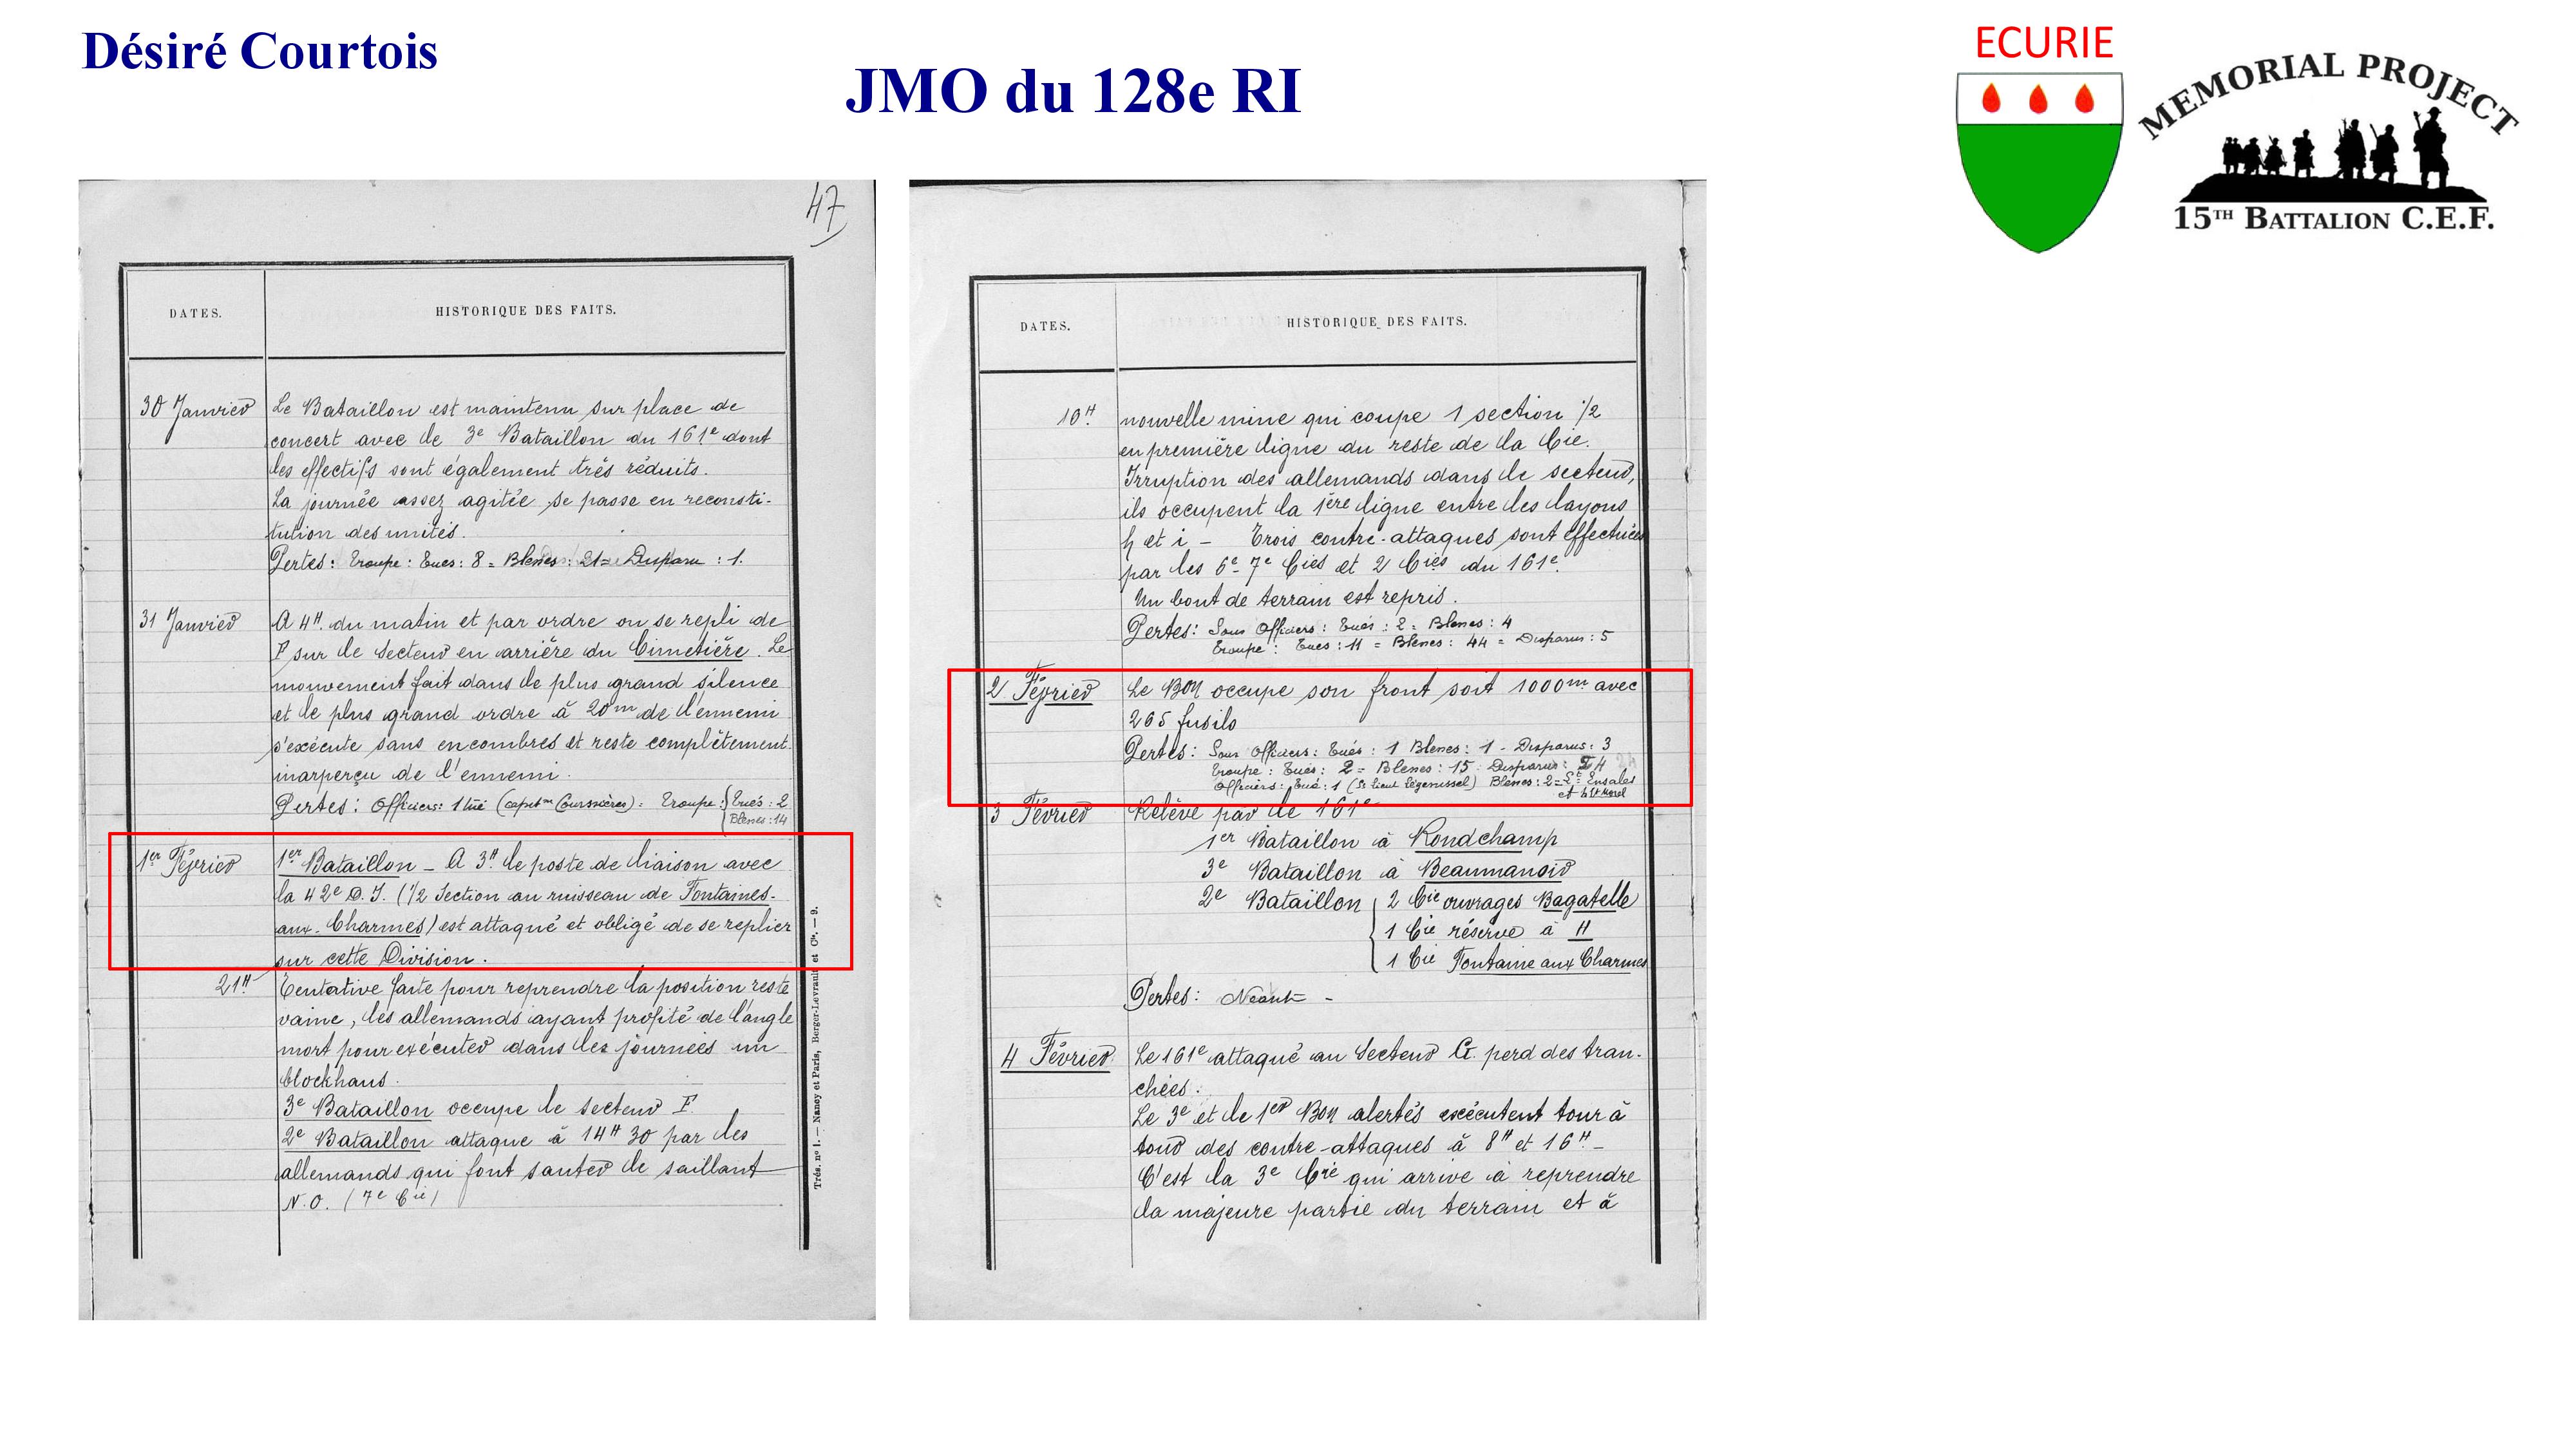 Désiré Courtois
JMO du 128e RI
ECURIE
MEMORIAL PROJECT
15TH BATTALION C.E.F.
47
DATES.
HISTORIQUE DES FAITS.
30 Janvier
Le Bataillon est maintenu sur place de
concert avec le 3e Bataillon du 161e dont
les effectifs sont également très réduits.
La journée assez agitée se passe en reconsti-
tution des unités.
Pertes : Troupe : Tués : 8 = Blessés : 21 = Disparu : 1.
31 Janvier
A 4H. du matin et par ordre on se repli de
F sur le secteur en arrière du Cimetière. Le
mouvement fait dans le plus grand silence
et le plus grand ordre à 20m de l'ennemi
s'exécute sans encombres et reste complètement
inarperçu de l'ennemi.
Pertes : Officiers : 1 tué (capitne Courssières) : Troupe : Tués : 2
Blessés : 14
1er Février
1er Bataillon – A 3H. le poste de liaison avec
la 42e D.I. (1/2 Section au ruisseau de Fontaines-
aux-Charmes) est attaqué et obligé de se replier
sur cette Division.
21H.
Tentative faite pour reprendre la position reste
vaine, les allemands ayant profité de l'angle
mort pour exécuter dans les journées un
blockhaus.
3e Bataillon occupe le secteur F.
2e Bataillon attaque à 14H 30 par les
allemands qui font sauter le saillant
N.O. (7e Cie)
Trés. no 1. — Nancy et Paris, Berger-Levrault et Cie. — 9.
DATES.
HISTORIQUE DES FAITS.
10H.
nouvelle mine qui coupe 1 section 1/2
en première ligne du reste de la Cie.
Irruption des allemands dans le secteur,
ils occupent la 1ère ligne entre les layons
h et i – Trois contre-attaques sont effectuées
par les 6e-7e Cies et 2 Cies du 161e.
Un bout de terrain est repris.
Pertes : Sous Officiers : Tués : 2 = Blessés : 4
Troupe : Tués : 11 = Blessés : 44 = Disparus : 5
2 Février
Le Bon occupe son front soit 1000m avec
265 fusils
Pertes : Sous Officiers : Tués : 1 Blessés : 1 - Disparus : 3
Troupe : Tués : 2 = Blessés : 15 : Disparus :
Officiers : Tué : 1 (St lieut Légenissel) Blessés : 2 =
et
3 Février
Relève par le 161e
1er Bataillon à Rondchamp
3e Bataillon à Beaumanoir
2e Bataillon 2 Cie ouvrages Bagatelle
1 Cie réserve à H
1 Cie Fontaine aux Charmes
Pertes : Néant –
4 Février
Le 161e attaqué au Secteur G. perd des tran-
chées.
Le 3e et le 1er Bon alertés exécutent tour à
tour des contre-attaques à 8H et 16H –
C'est la 3e Cie qui arrive à reprendre
la majeure partie du terrain et à